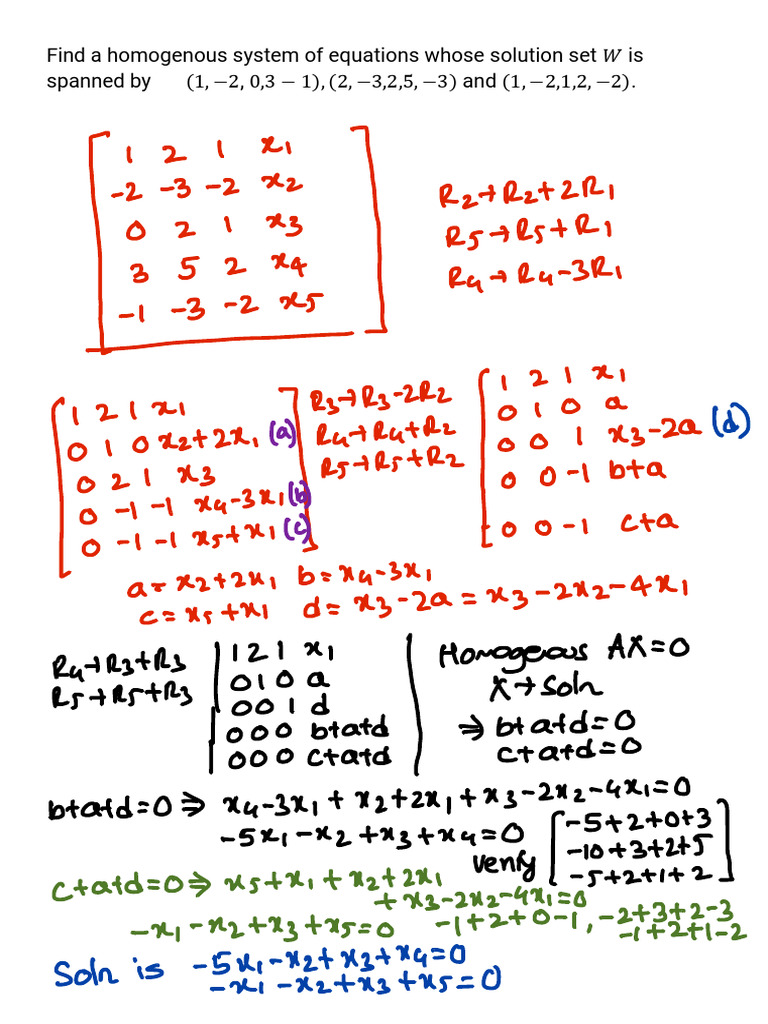 Find a homogenous system of equations whose solution set W is
spanned by (1, −2, 0,3 − 1), (2, −3,2,5, −3) and (1, −2,1,2, −2).
1 2 1 x1
-2 -3 -2 x2
0 2 1 x3
3 5 2 x4
-1 -3 -2 x5
R2→R2+2R1
R5→R5+R1
R4→R4-3R1
1 2 1 x1
0 1 0 x2+2x1 (a)
0 2 1 x3
0 -1 -1 x4-3x1 (b)
0 -1 -1 x5+x1 (c)
R3→R3-2R2
R4→R4+R2
R5→R5+R2
1 2 1 x1
0 1 0 a
0 0 1 x3-2a (d)
0 0 -1 b+a
0 0 -1 c+a
a=x2+2x1 b=x4-3x1
c=x5+x1 d=x3-2a=x3-2x2-4x1
R4→R3+R3
R5→R5+R3
1 2 1 x1
0 1 0 a
0 0 1 d
0 0 0 b+a+d
0 0 0 c+a+d
Homogeous AX=0
X→Soln
⇒ b+a+d=0
c+a+d=0
b+a+d=0 ⇒ x4-3x1+x2+2x1+x3-2x2-4x1=0
-5x1-x2+x3+x4=0
Verify
-5+2+0+3
-10+3+2+5
-5+2+1+2
c+a+d=0 ⇒ x5+x1+x2+2x1
+x3-2x2-4x1=0
-x1-x2+x3+x5=0
-1+2+0-1, -2+3+2-3
-1+2+1-2
Soln is -5x1-x2+x3+x4=0
-x1-x2+x3+x5=0